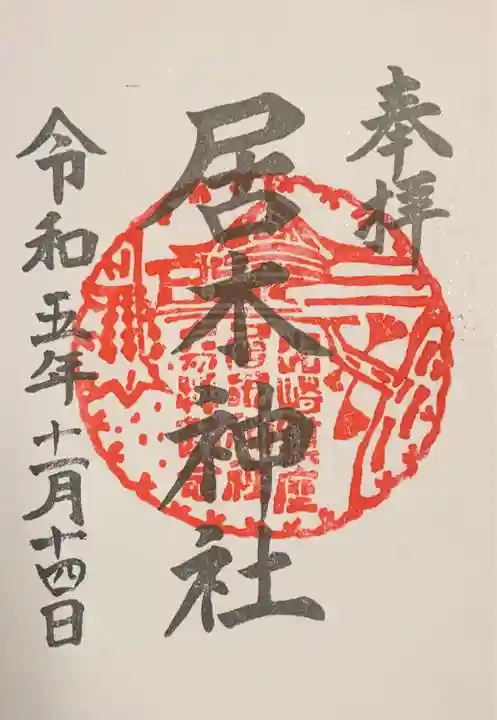 奉拝
居木神社
令和五年十一月十四日